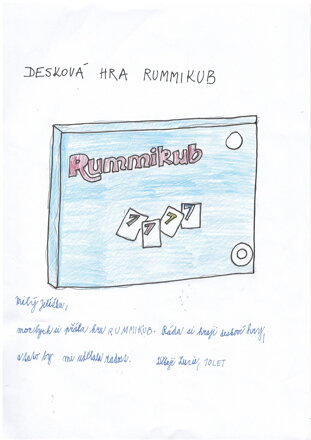 DESKOVÁ HRA RUMMIKUB
Rummikub
7 7 7 7
Milý Ježíšku,
moc bych si přála hru RUMMIKUB. Ráda si hraji deskové hry,
a tato by mi udělala radost. Děkuji Lucie, 10 LET